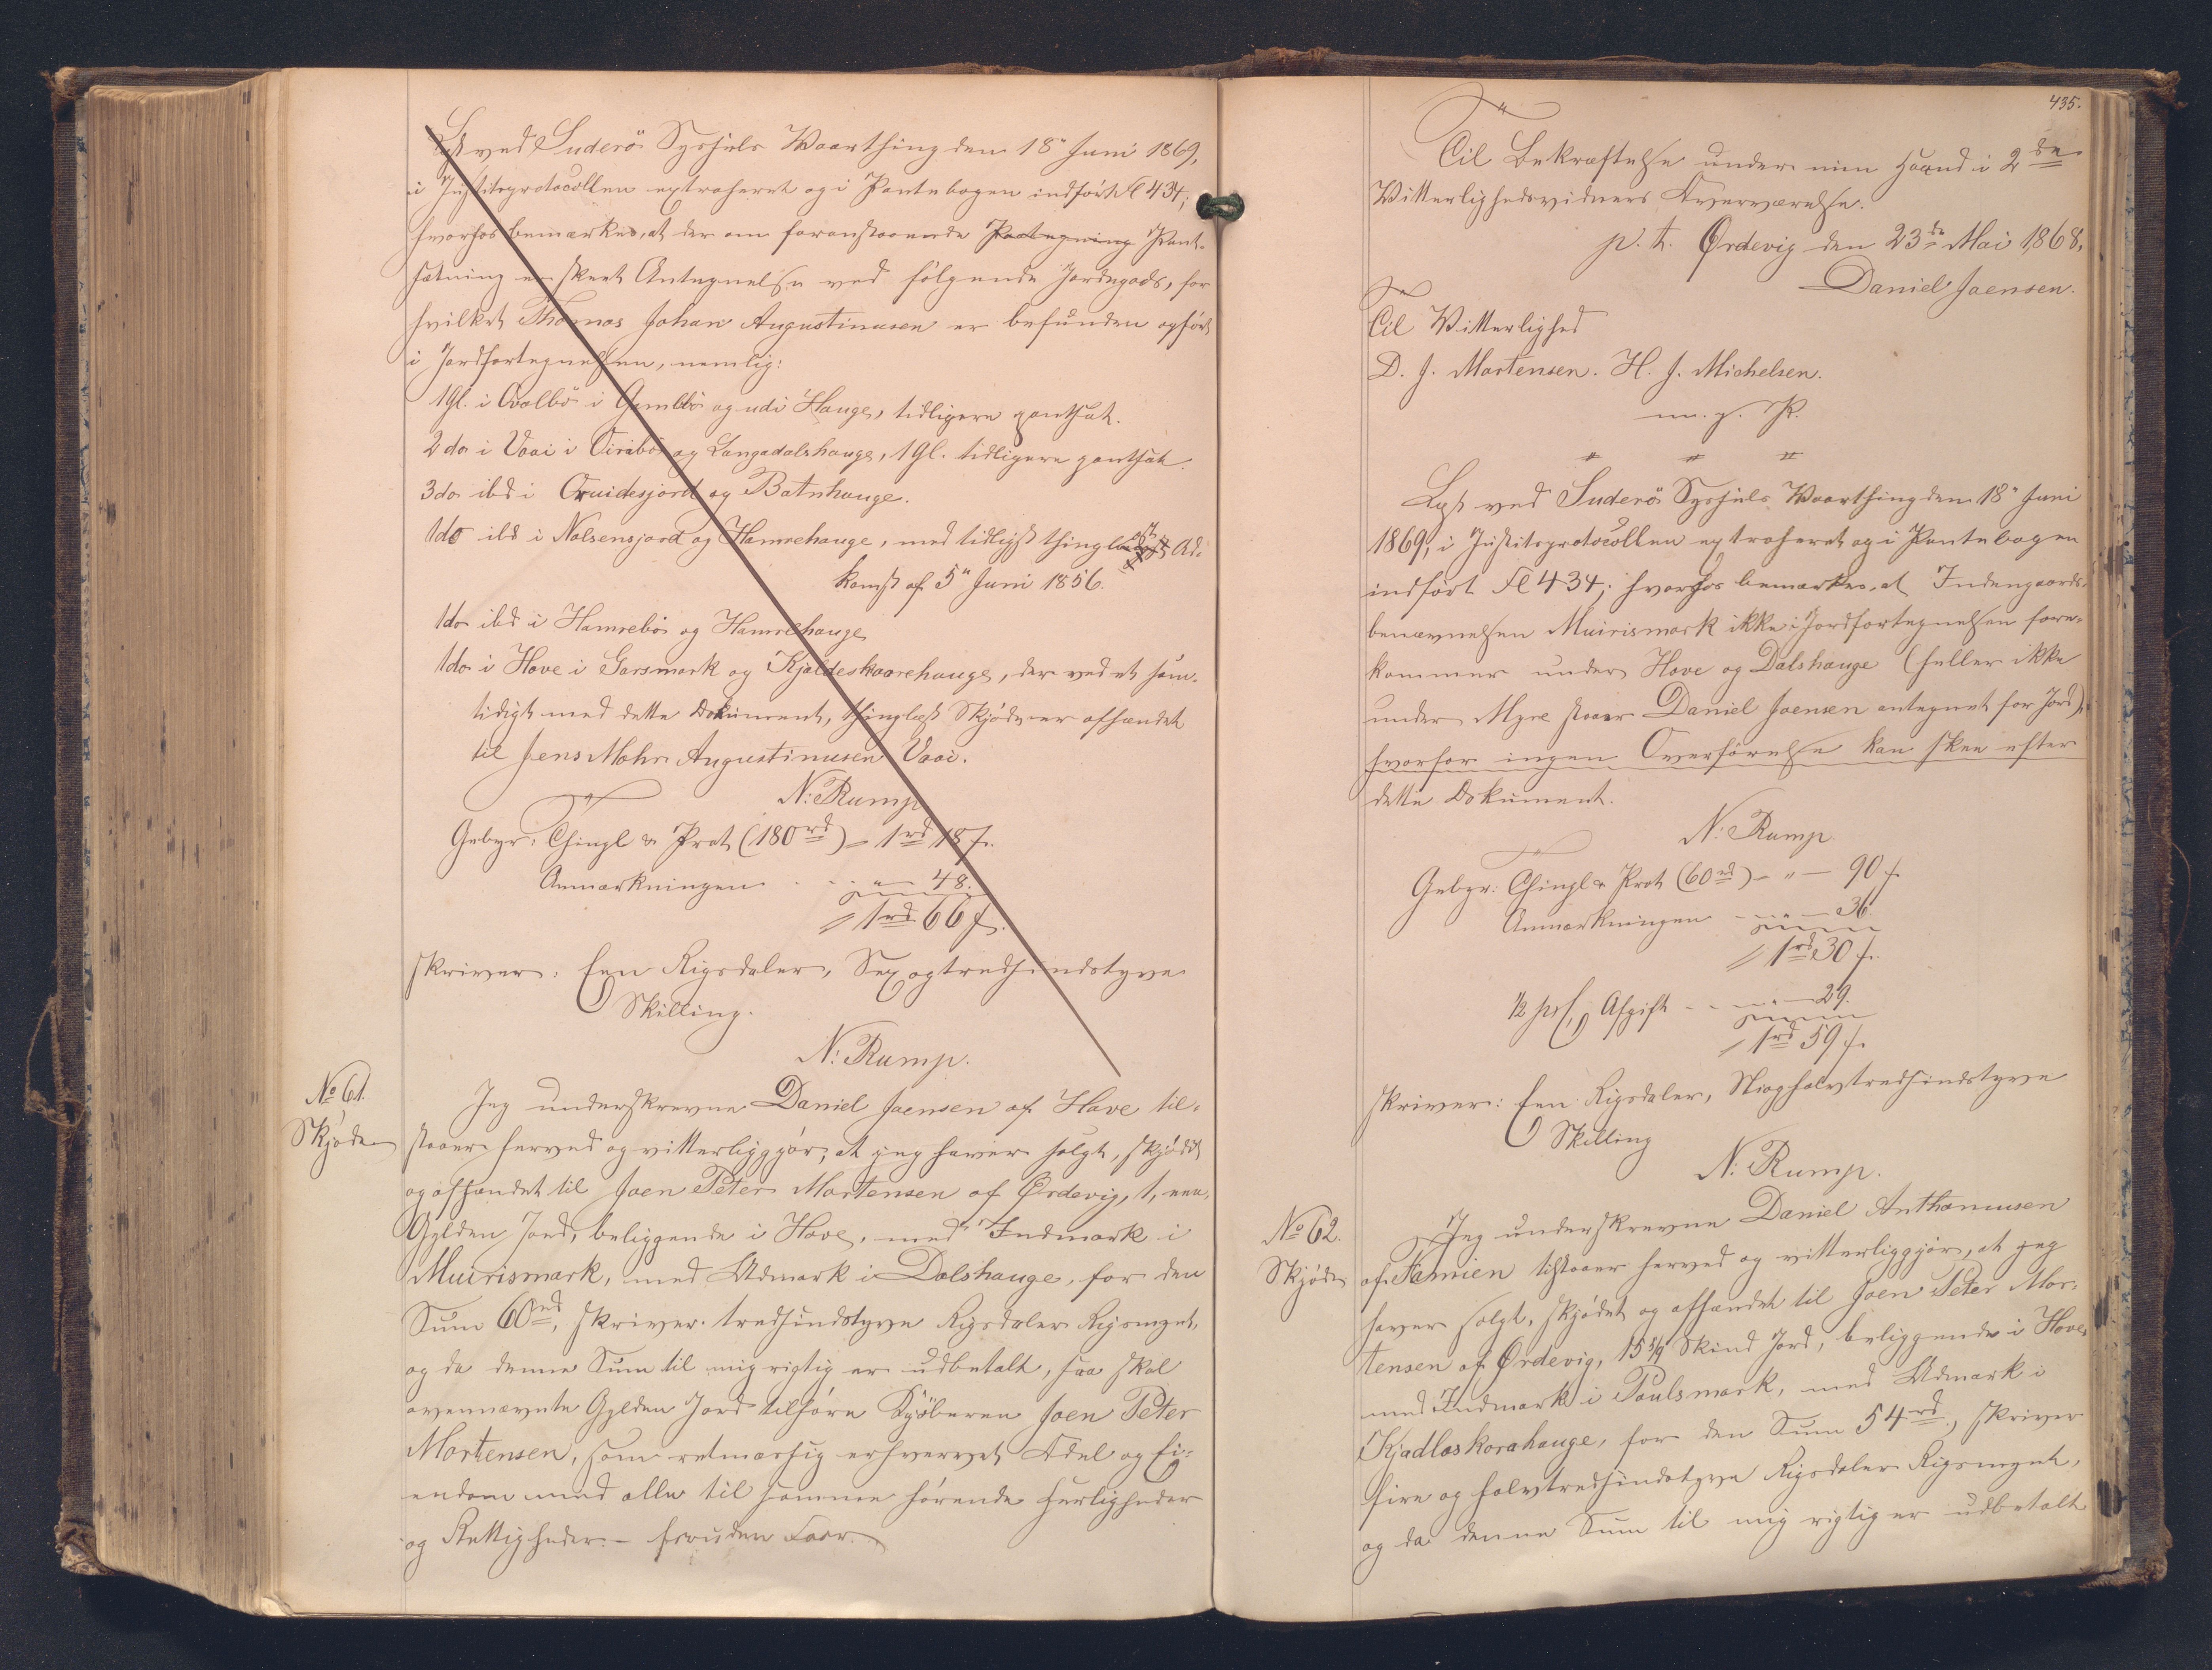 Læst ved Suderö Syssels Vaarthing den 18" Juni 1869,
i Justitsprotocollen extraheret og i Pantebogen indført Fl 434;
hvorhos bemærkes, at der om foranstaaende Paategning Pant-
sætning er skeet Antegnelse ved følgende Jordegods, for
hvilket Thomas Johan Augustinusen er befunden opført
i Jordfortegnelsen, nemlig:
1 Gl. i Qvalbö i Gjmlbö og udi Hauge, tidligere pantsat.
2 do i Vaai i Öirabö og Langadalshauge, 1 Gl. tidligere pantsat.
3 do ibd i Qvuidesjord og Botnhauge.
1 do ibd i Nolsensjord og Hamrehauge, med tidligst thinglæst Ad-
komst af 5" Juni 1856.
1 do ibd i Hamrebö og Hamrehauge
1 do i Hove i Garsmark og Kjaldeskaarehauge, der ved et sam-
tidigt med dette Dokument, thinglæst Skjøde er afhændet
til Jens Mohr Augustinusen Vaai.
N: Rump
Gebyr: Thingl & Prot (180 rd) = 1 rd 18 s.
Anmærkningen . . . " — 48.
= 1 rd 66 s.
skriver: Een Rigsdaler, Sex og tredsindstyve
Skilling.
N: Rump.
No 61.
Skjøde
Jeg underskrevne Daniel Joensen af Hove til-
staaer herved og vitterliggjør, at jeg haver solgt, skjødet
og afhændet til Joen Peter Mortensen af Ørdevig, 1, een,
Gylden Jord, beliggende i Hove, med Indmark i
Muirismark, med Udmark i Dalshauge, for den
Sum 60 rd, skriver tredsindstyve Rigsdaler Rigsmynt,
og da denne Sum til mig rigtig er udbetalt, saa skal
ovennævnte Gylden Jord tilhøre Kjøberen Joen Peter
Mortensen, som retmæssig erhvervet Odel og Ei-
endom med alle til samme hørende Herligheder
og Rettigheder. – foruden Faar.
435.
Til Bekræftelse under min Haand i 2de
Vitterlighedsvidners Overværelse.
p. t. Ørdevig den 23de Mai 1868.
Daniel Joensen.
Til Vitterlighed
D. J. Mortensen. H. J. Michelsen.
m. p. P.
Læst ved Suderö Syssels Vaarthing den 18" Juni
1869, i Justitsprotocollen extraheret og i Pantebogen
indført Fl 434; hvorhos bemærkes, at Indengaards-
benævnelsen Muirismark ikke i Jordfortegnelsen fore-
kommer under Hove og Dalshauge (heller ikke
under Myre staaer Daniel Joensen antegnet for Jord),
hvorfor ingen Overførelse kan skee efter
dette Dokument.
N: Rump.
Gebyr: Thingl & Prot (60 rd) – " — 90 s.
Anmærkningen – – " — 36
= 1 rd 30 s.
1/2 pCt Afgift – – " — 29.
= 1 rd 59 s.
skriver: Een Rigsdaler, Niog halvtredsindstyve
Skilling
N: Rump.
No 62.
Skjøde
Jeg underskrevne Daniel Anthoniusen
af Famien tilstaaer herved og vitterliggjør, at jeg
haver solgt, skjødet og afhændet til Joen Peter Mor-
tensen af Ørdevig, 15 5/9 Skind Jord, beliggende i Hove,
med Indmark i Poulsmark, med Udmark i
Kjadlaskorahauge, for den Sum 54 rd, skriver
fire og halvtredsindstyve Rigsdaler Rigsmynt,
og da denne Sum til mig rigtig er udbetalt